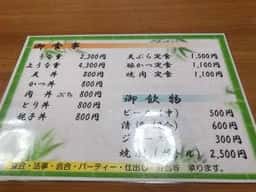 御食事
うな重 2,300円
上うな重 4,300円
天丼 800円
かつ丼 800円
肉丼 800円
とり丼 800円
親子丼 800円
天ぷら定食 1,500円
豚かつ定食 1,100円
焼肉定食 1,100円
御飲物
ビール(中) 500円
清酒 600円
300円
2,500円
宴会・法事・会合・パーティー・仕出し 承ります。